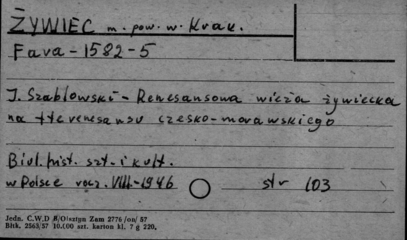 ŻYWIEC m. pow. w. Krak.
Fara - 1582 - 5
J. Szablowski - Renesansowa wieża żywiecka
na tle renesansu czesko-morawskiego
Biul. hist. szt. i kult.
w Polsce rocz. VIII - 1946 str 103
Jedn. C.W.D /Olsztyn Zam 2776 /on/ 57
Bitk. 2563/57 10.000 szt. karton kl. 7 g 220.